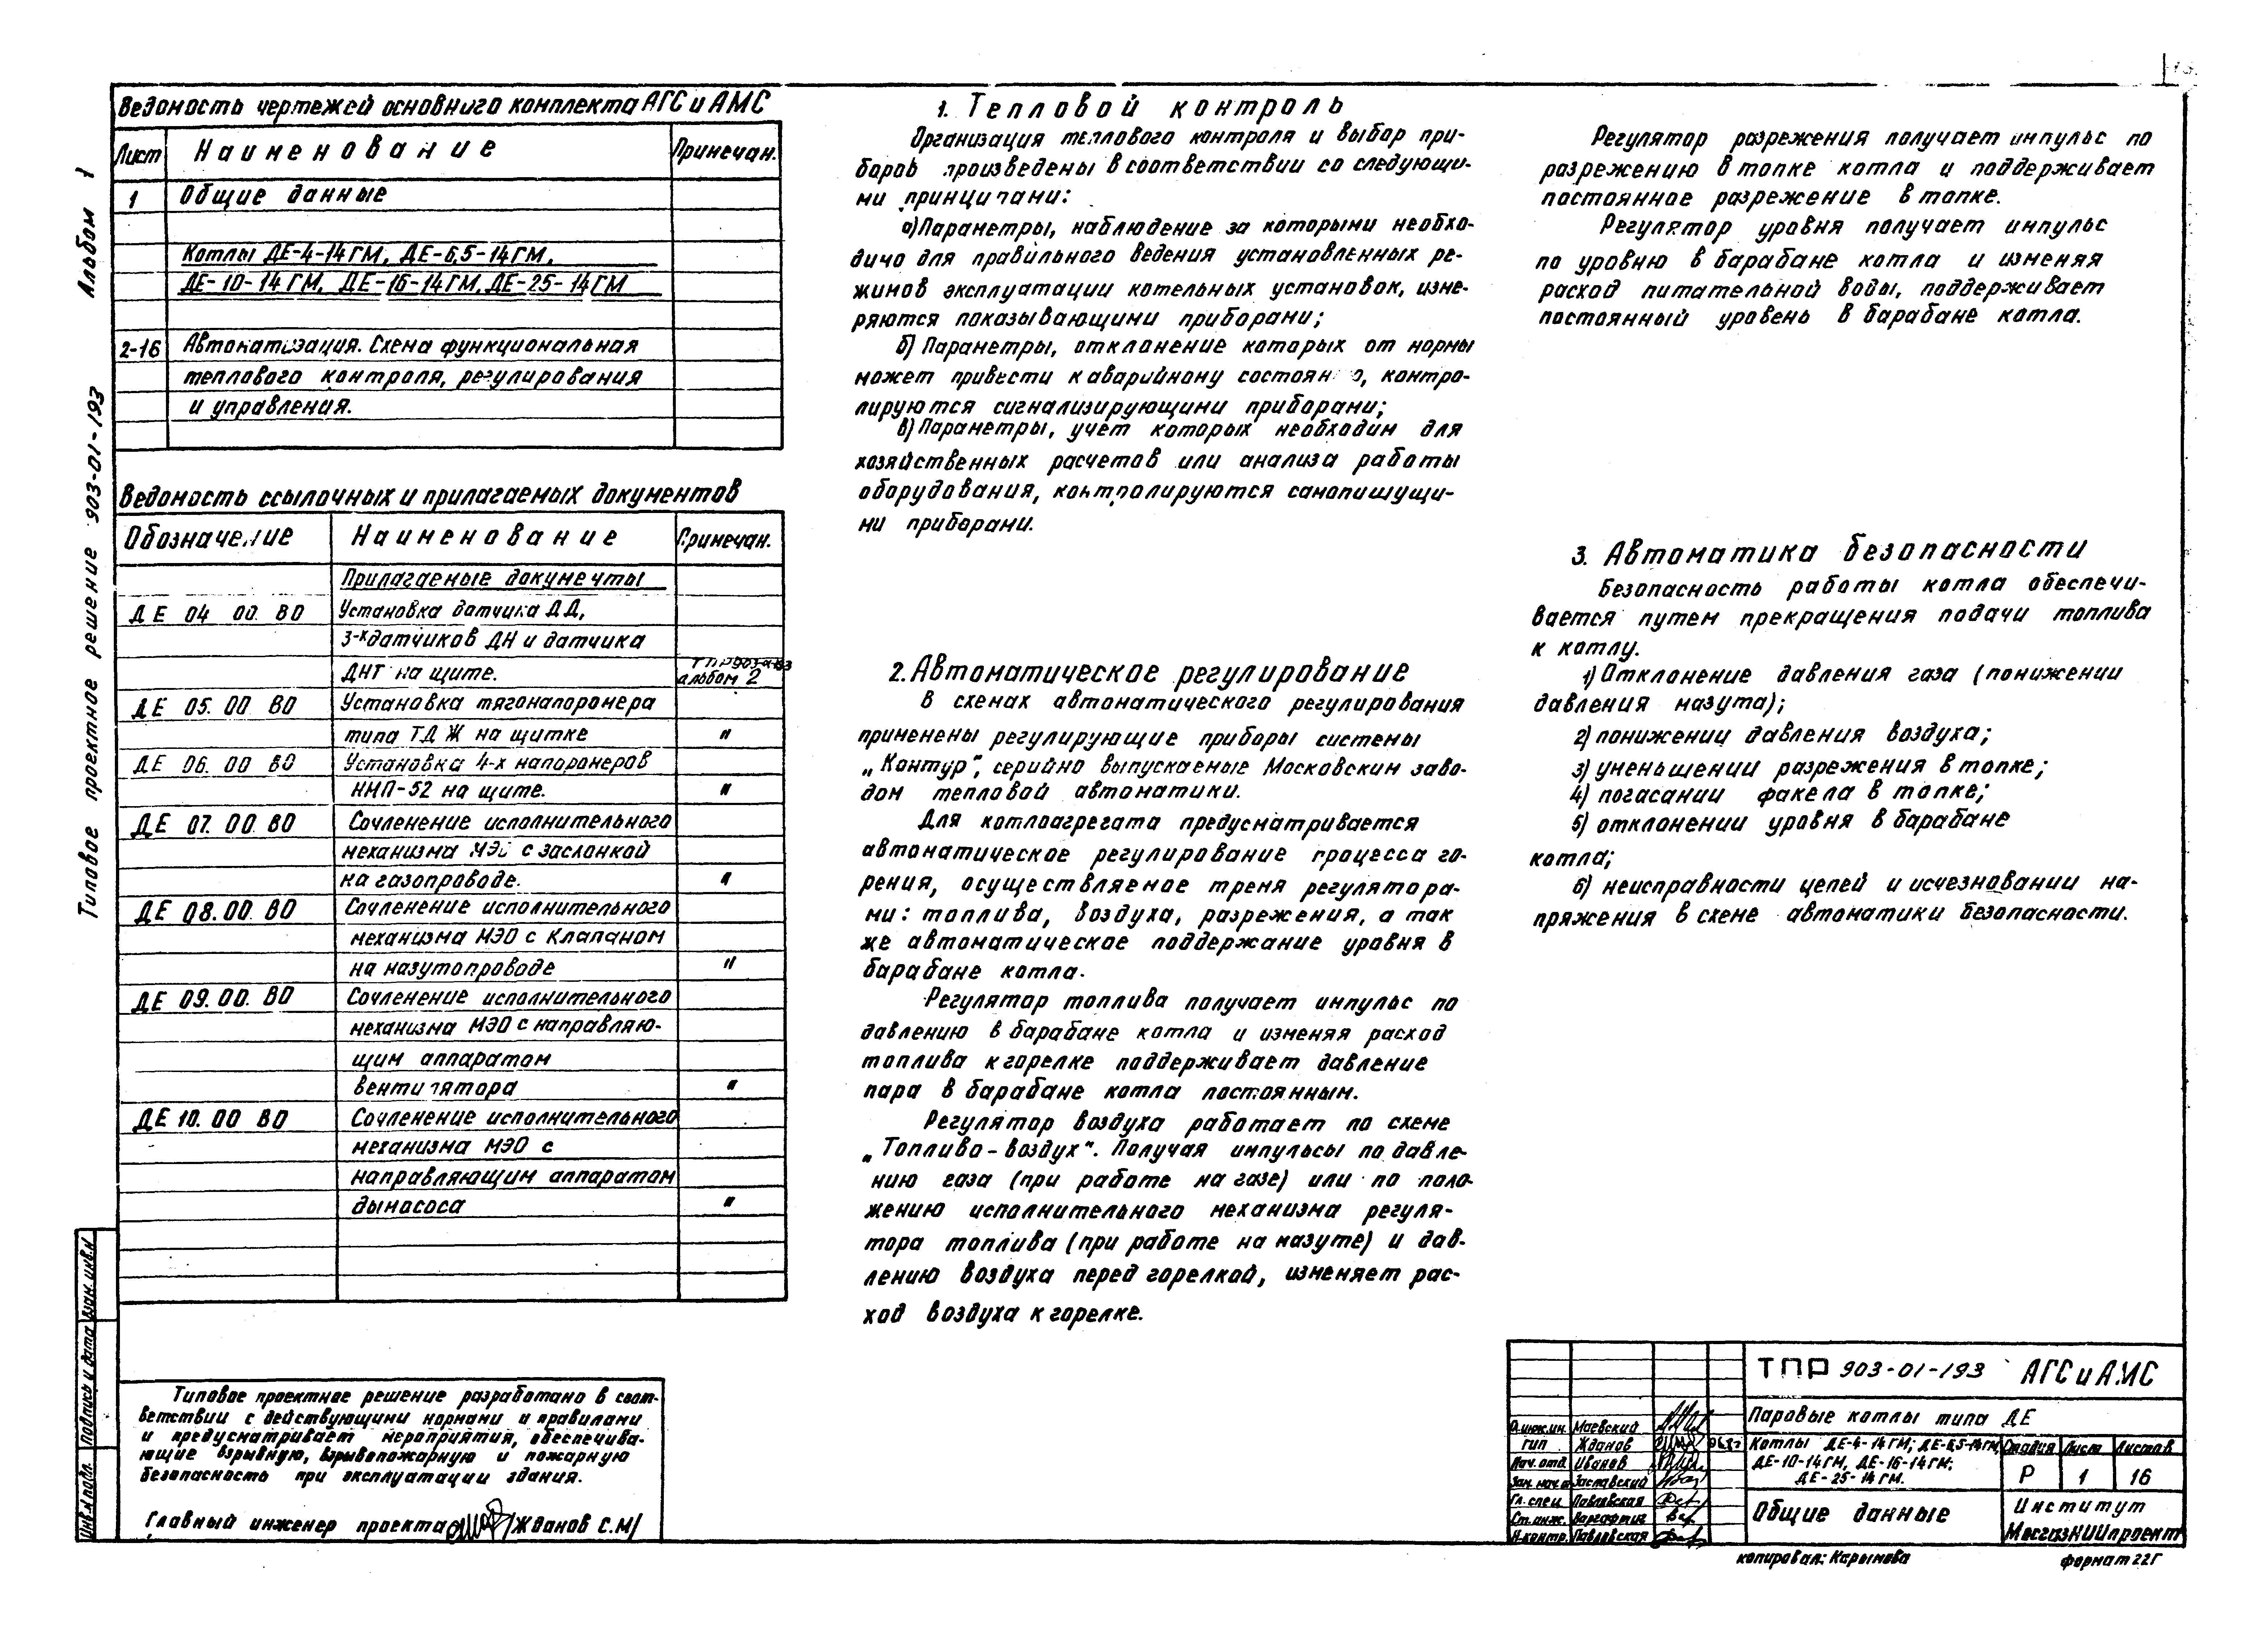 Альбом 1
Типовое проектное решение 903-01-193
Ведомость чертежей основного комплекта АГС и АМС
Лист Наименование Примечан.
1 Общие данные
Котлы ДЕ-4-14ГМ, ДЕ-6,5-14ГМ,
ДЕ-10-14ГМ, ДЕ-16-14ГМ, ДЕ-25-14ГМ
2-16 Автоматизация. Схема функциональная
теплового контроля, регулирования
и управления.
Ведомость ссылочных и прилагаемых документов
Обозначение Наименование Примечан.
Прилагаемые документы
ДЕ 04 00. ВО Установка датчика ДД,
3-х датчиков ДН и датчика
ДНТ на щите. ТПР 903-01-193 альбом 2
ДЕ 05. 00 ВО Установка тягонапоромера
типа ТДЖ на щитке "
ДЕ 06. 00 ВО Установка 4-х напоромеров
НМП-52 на щите. "
ДЕ 07. 00. ВО Сочленение исполнительного
механизма МЭО с заслонкой
на газопроводе. "
ДЕ 08. 00. ВО Сочленение исполнительного
механизма МЭО с клапаном
на мазутопроводе "
ДЕ 09. 00. ВО Сочленение исполнительного
механизма МЭО с направляю-
щим аппаратом
вентилятора "
ДЕ 10. 00 ВО Сочленение исполнительного
механизма МЭО с
направляющим аппаратом
дымососа "
Типовое проектное решение разработано в соот-
ветствии с действующими нормами и правилами
и предусматривает мероприятия, обеспечива-
ющие взрывную, взрывопожарную и пожарную
безопасность при эксплуатации здания.
Главный инженер проекта /Жданов С.М/
Инв.N подл. Подпись и дата Взам. инв.N
1. Тепловой контроль
Организация теплового контроля и выбор при-
боров произведены в соответствии со следующи-
ми принципами:
а) Параметры, наблюдение за которыми необхо-
димо для правильного ведения установленных ре-
жимов эксплуатации котельных установок, изме-
ряются показывающими приборами;
б) Параметры, отклонение которых от нормы
может привести к аварийному состоянию, контро-
лируются сигнализирующими приборами;
в) Параметры, учет которых необходим для
хозяйственных расчетов или анализа работы
оборудования, контролируются самопишущи-
ми приборами.
2. Автоматическое регулирование
В схемах автоматического регулирования
применены регулирующие приборы системы
„Контур", серийно выпускаемые Московским заво-
дом тепловой автоматики.
Для котлоагрегата предусматривается
автоматическое регулирование процесса го-
рения, осуществляемое тремя регулятора-
ми: топлива, воздуха, разрежения, а так
же автоматическое поддержание уровня в
барабане котла.
Регулятор топлива получает импульс по
давлению в барабане котла и изменяя расход
топлива к горелке поддерживает давление
пара в барабане котла постоянным.
Регулятор воздуха работает по схеме
„Топливо-воздух". Получая импульсы по давле-
нию газа (при работе на газе) или по поло-
жению исполнительного механизма регуля-
тора топлива (при работе на мазуте) и дав-
лению воздуха перед горелкой, изменяет рас-
ход воздуха к горелке.
Регулятор разрежения получает импульс по
разрежению в топке котла и поддерживает
постоянное разрежение в топке.
Регулятор уровня получает импульс
по уровню в барабане котла и изменяя
расход питательной воды, поддерживает
постоянный уровень в барабане котла.
3. Автоматика безопасности
Безопасность работы котла обеспечи-
вается путем прекращения подачи топлива
к котлу.
1) Отклонение давления газа (понижении
давления мазута);
2) понижении давления воздуха;
3) уменьшении разрежения в топке;
4) погасании факела в топке;
5) отклонении уровня в барабане
котла;
6) неисправности цепей и исчезновании на-
пряжения в схеме автоматики безопасности.
ТПР 903-01-193 АГС и АМС
Паровые котлы типа ДЕ
Гл.инж.ин. Маевский
ГИП Жданов
Нач. отд. Иванов
Зам. нач.о Заславский
Гл. спец Павловская
Ст. инж. Варгафтиг
Н.контр. Павловская
Котлы ДЕ-4-14ГМ; ДЕ-6,5-14ГМ,
ДЕ-10-14ГМ, ДЕ-16-14ГМ;
ДЕ-25-14ГМ.
Стадия Лист Листов
Р 1 16
Общие данные
Институт
МосгазНИИпроект
копировал: Карымова формат 22Г